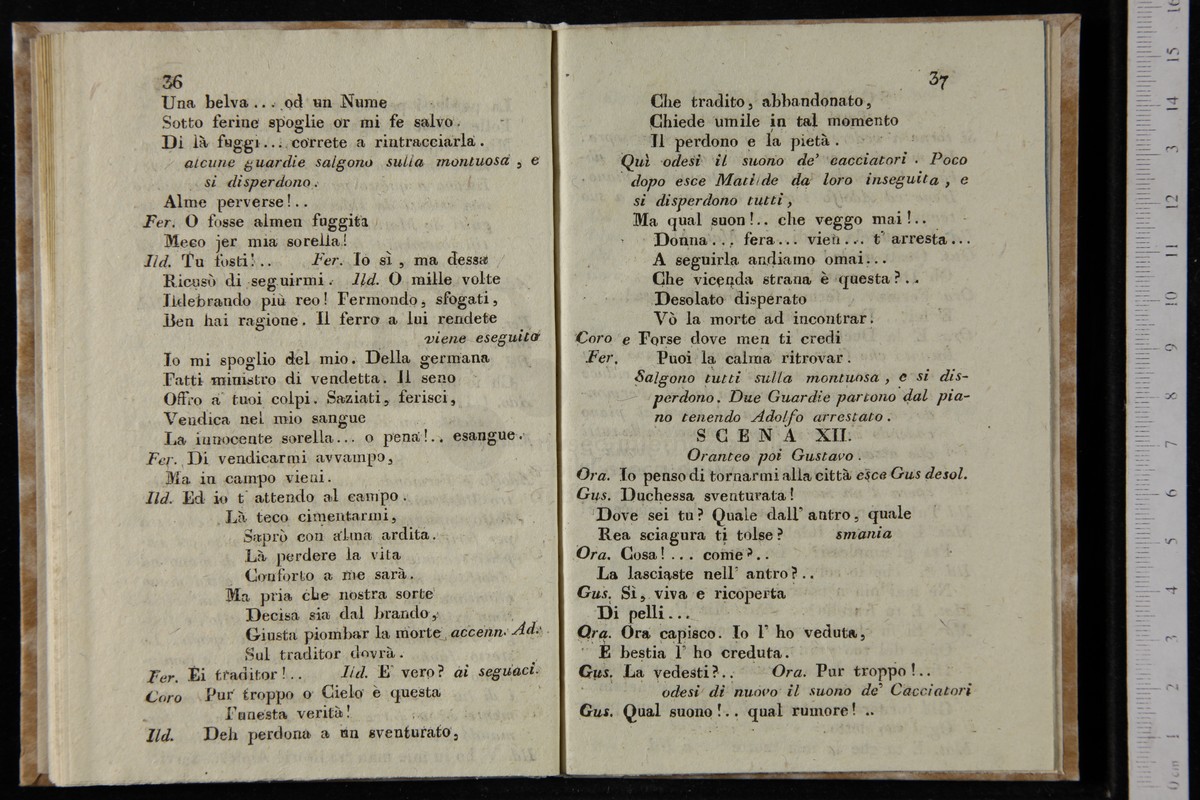 36
Una belva ... od un Nume
Sotto ferine spoglie or mi fe salvo.
Di là fuggì... correte a rintracciarla.
alcune guardie salgono sulla montuosa, e
si disperdono.
Alme perverse!..
Fer. O fosse almen fuggita
Meco jer mia sorella!
Ild. Tu fosti!.. Fer. Io sì, ma dessa
Ricusò di seguirmi. Ild. O mille volte
Ildebrando più reo! Fermondo, sfogati,
Ben hai ragione. Il ferro a lui rendete
viene eseguito
Io mi spoglio del mio. Della germana
Fatti ministro di vendetta. Il seno
Offro a' tuoi colpi. Saziati, ferisci,
Vendica nel mio sangue
La innocente sorella... o pena!.. esangue.
Fer. Di vendicarmi avvampo,
Ma in campo vieni.
Ild. Ed io t' attendo al campo.
Là teco cimentarmi,
Saprò con alma ardita.
Là perdere la vita
Conforto a me sarà.
Ma pria che nostra sorte
Decisa sia dal brando,
Giusta piombar la morte accenn. Ad.
Sul traditor dovrà.
Fer. Ei traditor!.. Ild. E' vero? ai seguaci.
Coro Pur troppo o Cielo è questa
Funesta verità!
Ild. Deh perdona a un sventurato,
37
Che tradito, abbandonato,
Chiede umile in tal momento
Il perdono e la pietà.
Quì odesi il suono de' cacciatori. Poco
dopo esce Matilde da loro inseguita, e
si disperdono tutti,
Ma qual suon!.. che veggo mai!..
Donna... fera... vien... t' arresta...
A seguirla andiamo omai...
Che vicenda strana è questa?..
Desolato disperato
Vò la morte ad incontrar.
Coro e Forse dove men ti credi
Fer. Puoi la calma ritrovar.
Salgono tutti sulla montuosa, e si dis-
perdono. Due Guardie partono dal pia-
no tenendo Adolfo arrestato.
SCENA XII.
Oranteo poi Gustavo.
Ora. Io penso di tornarmi alla città esce Gus desol.
Gus. Duchessa sventurata!
Dove sei tu? Quale dall' antro, quale
Rea sciagura ti tolse? smania
Ora. Cosa!... come?..
La lasciaste nell' antro?..
Gus. Sì, viva e ricoperta
Di pelli...
Ora. Ora capisco. Io l' ho veduta,
E bestia l' ho creduta.
Gus. La vedesti?.. Ora. Pur troppo!..
odesi di nuovo il suono de' Cacciatori
Gus. Qual suono!.. qual rumore! ..